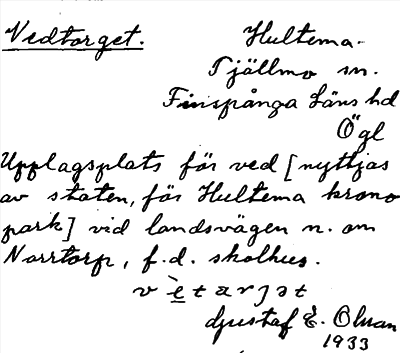 Vedtorget.
Hultema.
Tjällmo sn.
Finspånga läns hd
Ögl
Upplagsplats för ved [nyttjas
av staten, för Hultema krono
park] vid landsvägen n. om
Norrtorp, f.d. skolhus.
Gustaf E. Olsson
1933